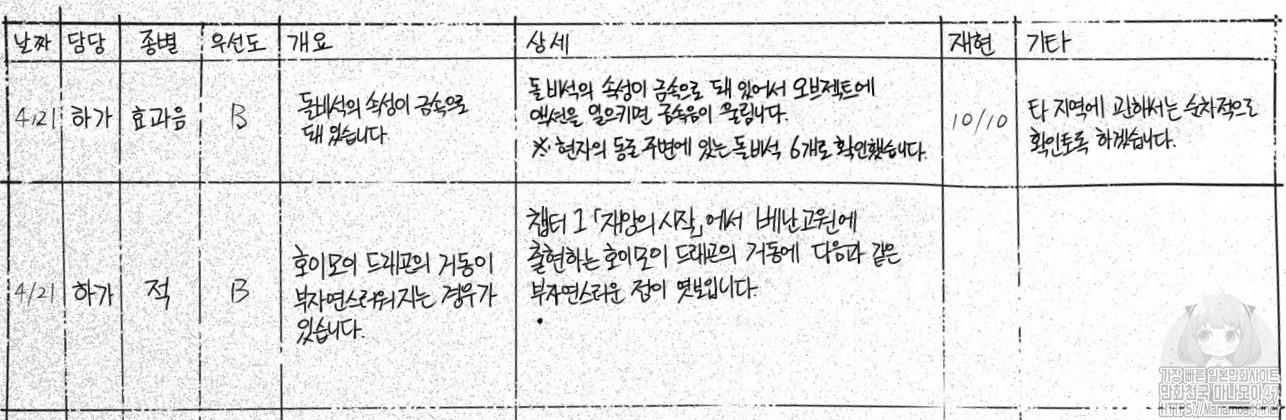 날짜 담당 종별 우선도 개요 상세 재현 기타
4/21 하가 효과음 B
돌비석의 속성이 금속으로
돼 있습니다.
돌비석의 속성이 금속으로 돼 있어서 오브젝트에
액션을 일으키면 금속음이 울립니다.
※ 현자의 동굴 주변에 있는 돌비석 6개로 확인했습니다.
10/10
타 지역에 관해서는 순차적으로
확인토록 하겠습니다.
4/21 하가 적 B
호이모이 드래곤의 거동이
부자연스러워지는 경우가
있습니다.
챕터 1 「재앙의 시작」에서 베난고원에
출현하는 호이모이 드래곤의 거동에 다음과 같은
부자연스러운 점이 엿보입니다.
•
가장 빠른 일본만화사이트
만화천국 마나모아